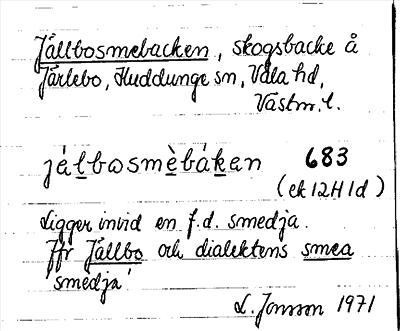 Jällbosmebacken, skogsbacke å
Järlebo, Huddunge sn, Våla hd,
Västm. l.
jálbosmèbáken 683
(ek 12H1d)
Ligger invid en f.d. smedja.
Jfr Jällbo och dialektens smea
'smedja'
L. Jonsson 1971